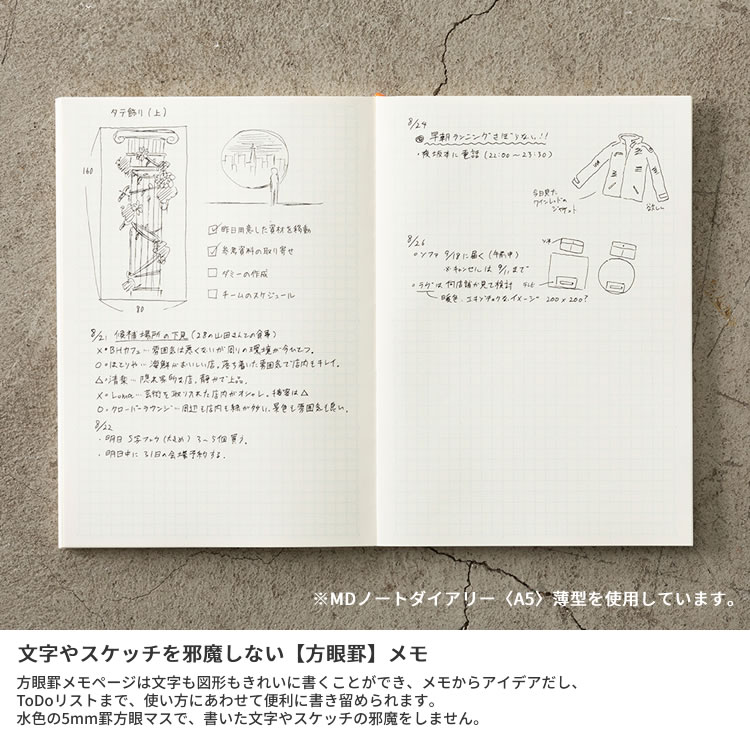 タテ飾り(上)
160
80
☑ 昨日用意した資材を移動
☑ 参考資料の取り寄せ
☐ ダミーの作成
☐ チームのスケジュール
8/21 候補場所の下見(28の山田さんとの食事)
×・BHカフェ…雰囲気は悪くないが周りの環境が今ひとつ。
○・はとりや…海鮮がおいしい店。落ち着いた雰囲気で店内もキレイ。
△・清楽…隠れ家的な店。静かで上品。
×・Loma…芸術を取り入れた店内がオシャレ。接客は△
○・クローバーラウンジ…周辺も店内も緑が多い、景色も雰囲気も良い。
8/22
・明日 S字フック(大きめ) 3〜5個買う。
・明日中に31日の会場予約する。
8/24
早朝ランニングさぼらない!!
・長坂本に電話(22:00〜23:30)
今日見た
ワインレッドの
ジャケット
欲しい
8/26
○ソファ 9/18に届く(午前中)
※キャンセルは9/1まで
○ラグは何店舗か見て検討
暖色、エキゾチックなイメージ 200×200?
ソファ
テレビ
※MDノートダイアリー〈A5〉薄型を使用しています。
文字やスケッチを邪魔しない【方眼罫】メモ
方眼罫メモページは文字も図形もきれいに書くことができ、メモからアイデアだし、
ToDoリストまで、使い方にあわせて便利に書き留められます。
水色の5mm罫方眼マスで、書いた文字やスケッチの邪魔をしません。